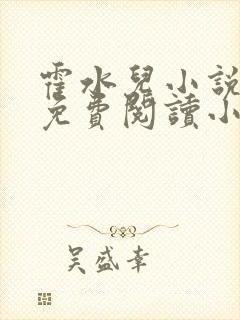 霍水兒小說
免費閱讀小
吳盛幸